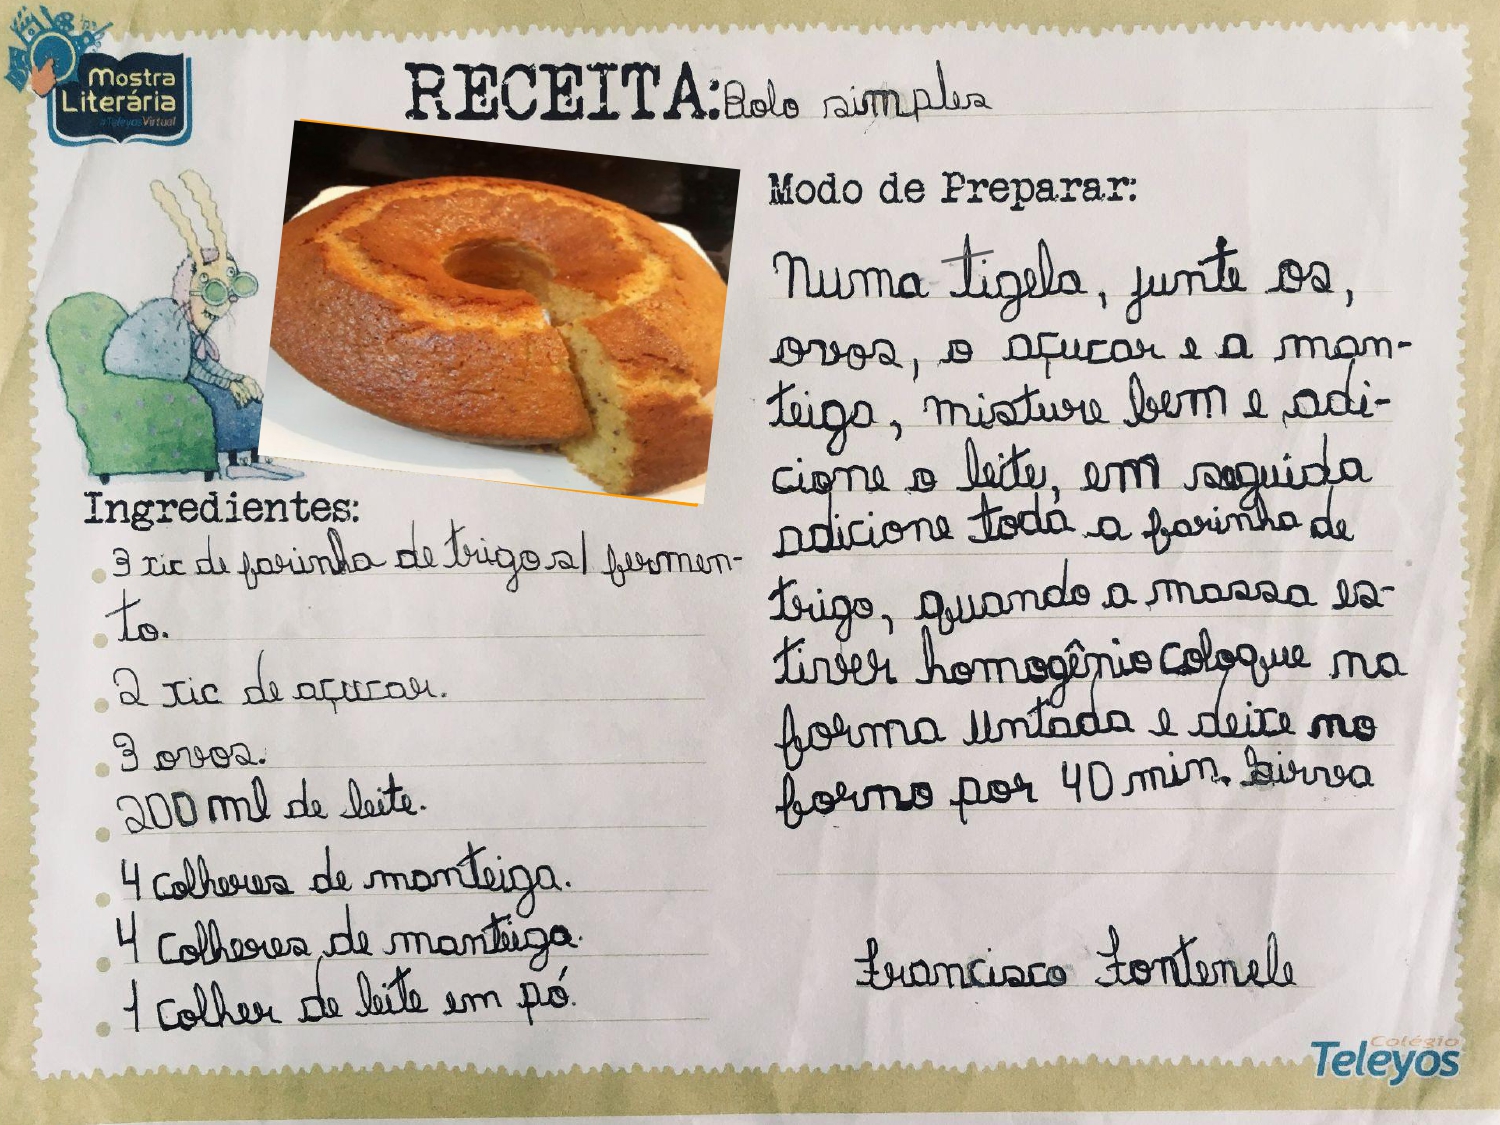 Mostra
Literária
a Teleyos Virtual
RECEITA: Bolo simples
Ingredientes:
3 xic de farinha de trigo s/ fermen-
to.
2 xic de açucar.
3 ovos.
200 ml de leite.
4 colheres de manteiga.
4 colheres de manteiga.
1 colher de leite em pó.
Modo de Preparar:
Numa tigela, junte os,
ovos, o açucar e a man-
teiga, misture bem e adi-
cione o leite, em seguida
adicione toda a farinha de
trigo, quando a massa es-
tiver homogênio coloque na
forma untada e deixe no
forno por 40 min. Sirva
Francisco Fontenele
Colégio
Teleyos